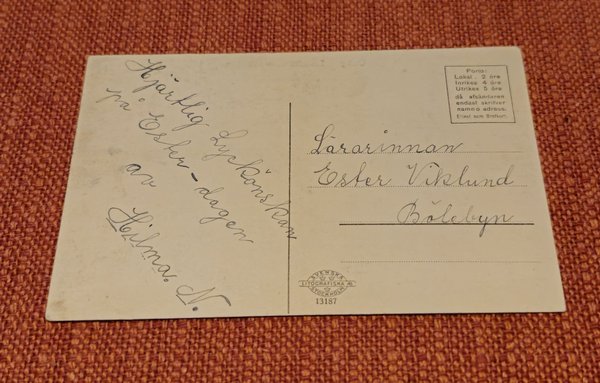 Hjärtlig Lyckönskan
på Ester-dagen
av
Hilma. N.
Porto:
Lokal. 2 öre
Inrikes 4 öre
Utrikes 5 öre
då afsändaren
endast skrifver
namn o. adress.
Eljest som Brefkort.
Lärarinnan
Ester Viklund
Bölebyn
SVENSKA
LITOGRAFISKA AB.
STOCKHOLM
13187